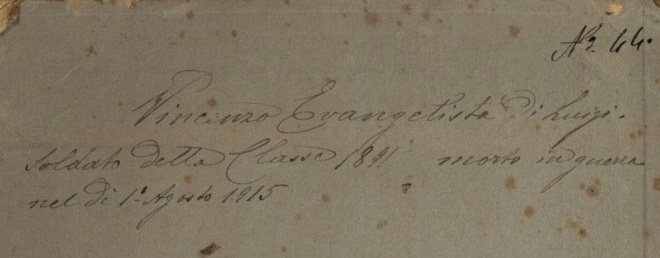 Nº 44.
Vincenzo Evangelista di Luigi.
Soldato della Classe 1891 morto in guerra
nel dì 1º Agosto 1915